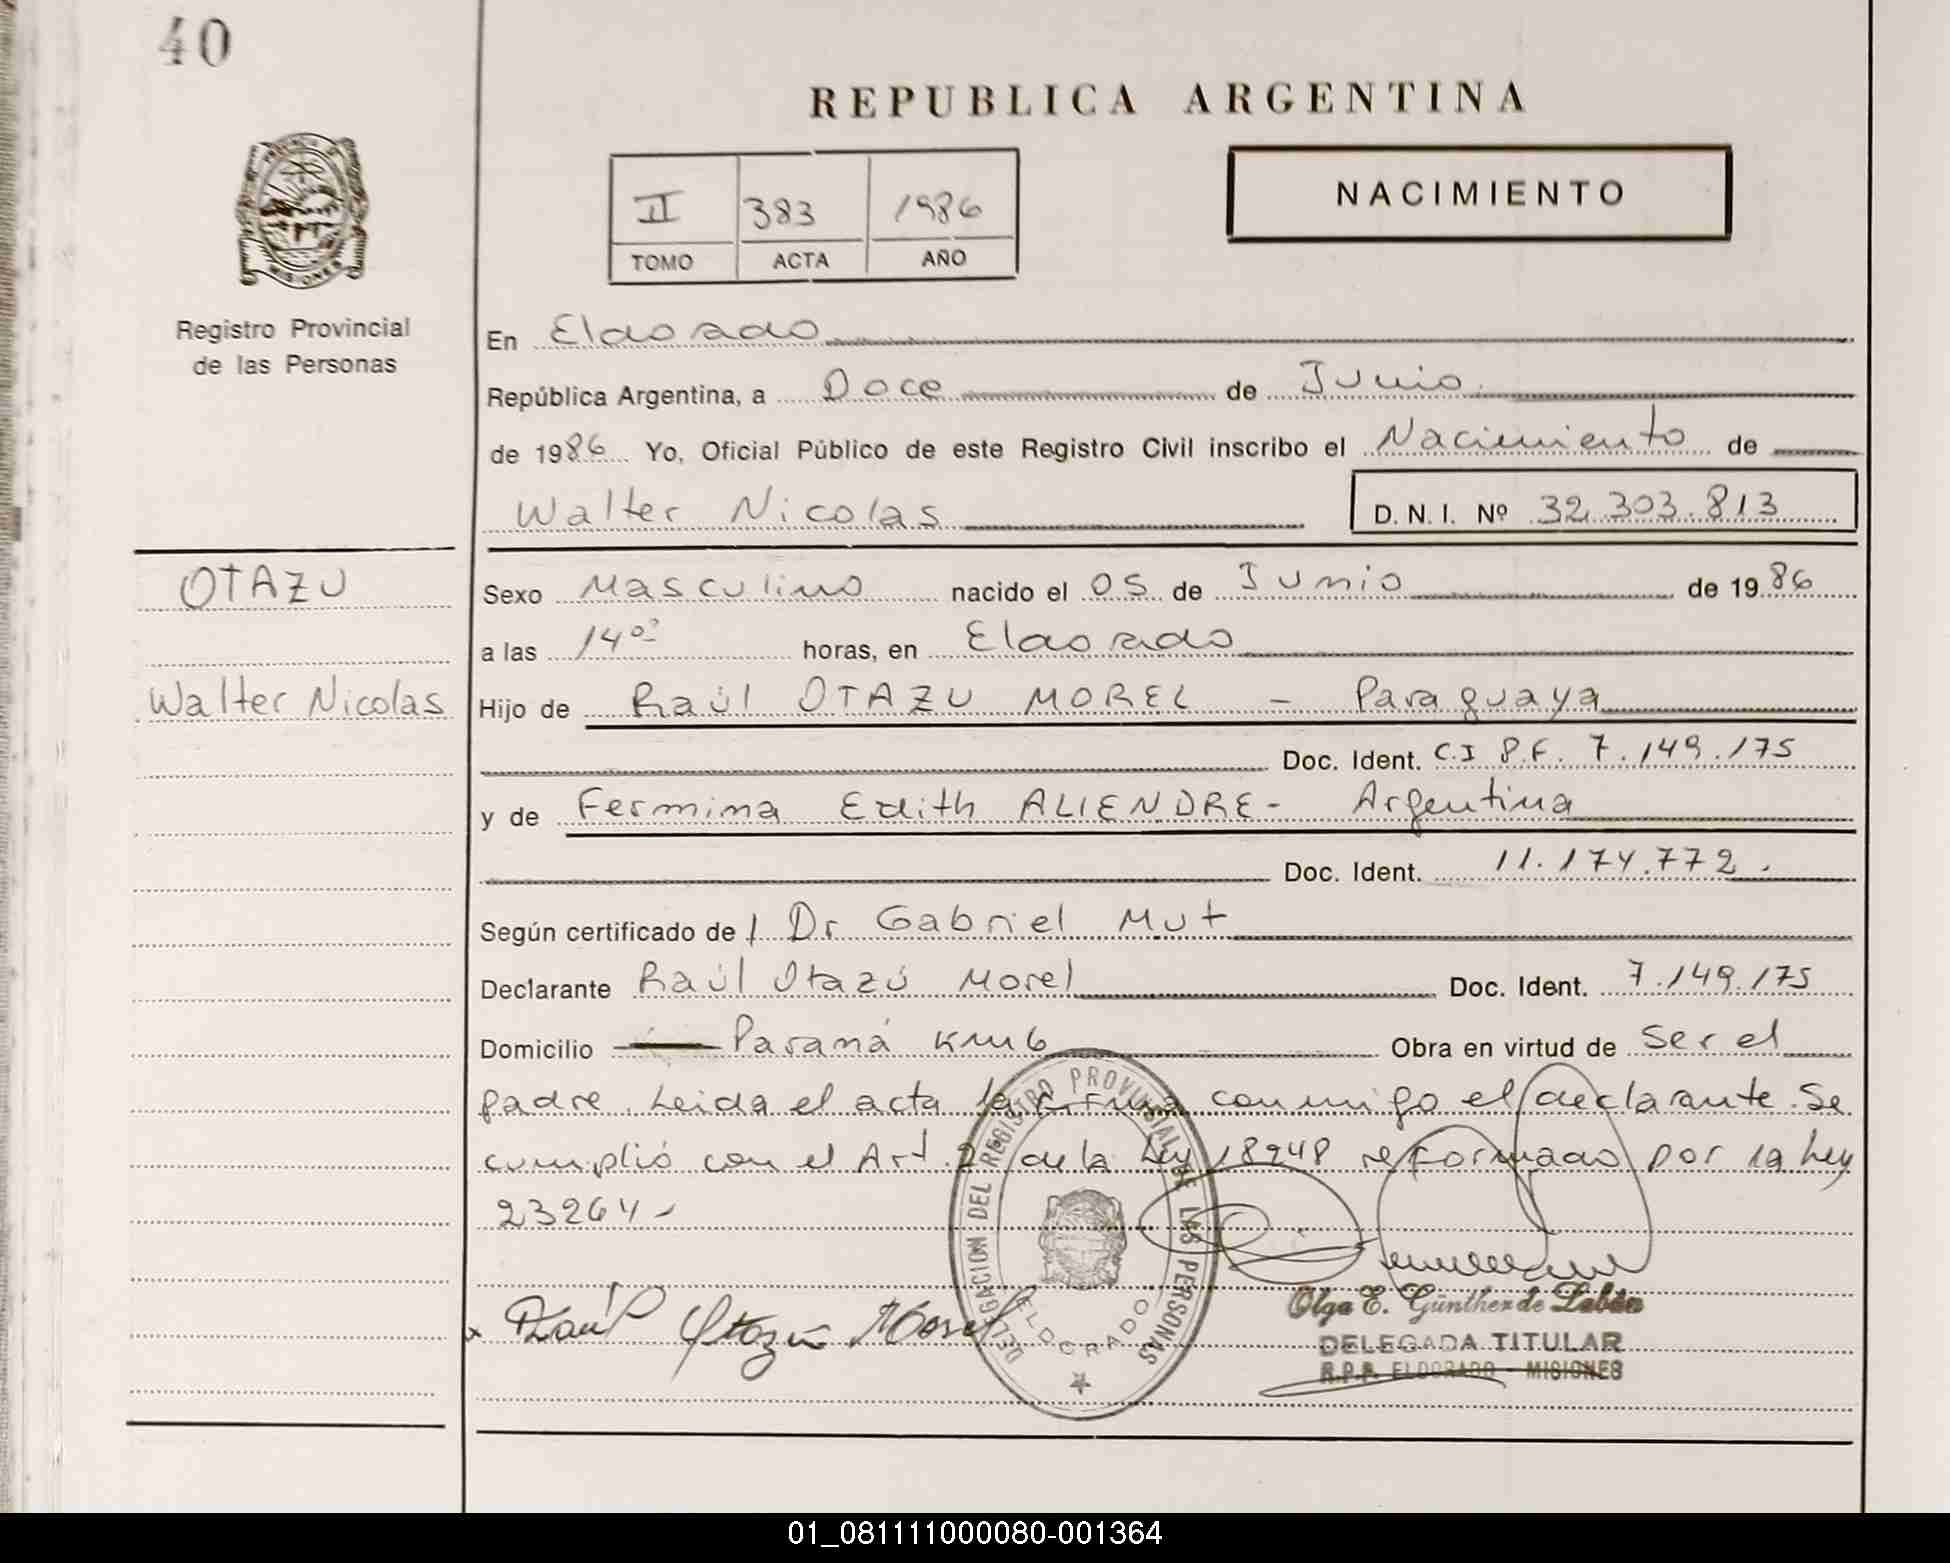 40
REPUBLICA ARGENTINA
NACIMIENTO
II 383 1986
TOMO ACTA AÑO
MISIONES
Registro Provincial
de las Personas
En Eldorado
República Argentina, a Doce de Junio
de 1986 Yo, Oficial Público de este Registro Civil inscribo el Nacimiento de
Walter Nicolas D. N. I. Nº 32.303.813
OTAZU
Walter Nicolas
Sexo Masculino nacido el 05 de Junio de 1986
a las 14 horas, en Eldorado
Hijo de Raúl OTAZU MOREL - Paraguaya
Doc. Ident. C.I P.F. 7.149.175
y de Fermina Edith ALIENDRE - Argentina
Doc. Ident. 11.174.772.
Según certificado de Dr Gabriel Mut
Declarante Raúl Otazú Morel Doc. Ident. 7.149.175
Domicilio Paraná KM 6 Obra en virtud de ser el
padre. Leida el acta la firma conmigo el declarante. Se
cumplió con el Art. 2 de la Ley 18248 reformado por la Ley
23264 -
Raúl Otazú Morel
DELEGACION DEL REGISTRO PROVINCIAL DE LAS PERSONAS
ELDORADO
Olga E. Günther de Labán
DELEGADA TITULAR
R.P.P. ELDORADO - MISIONES
01_081111000080-001364